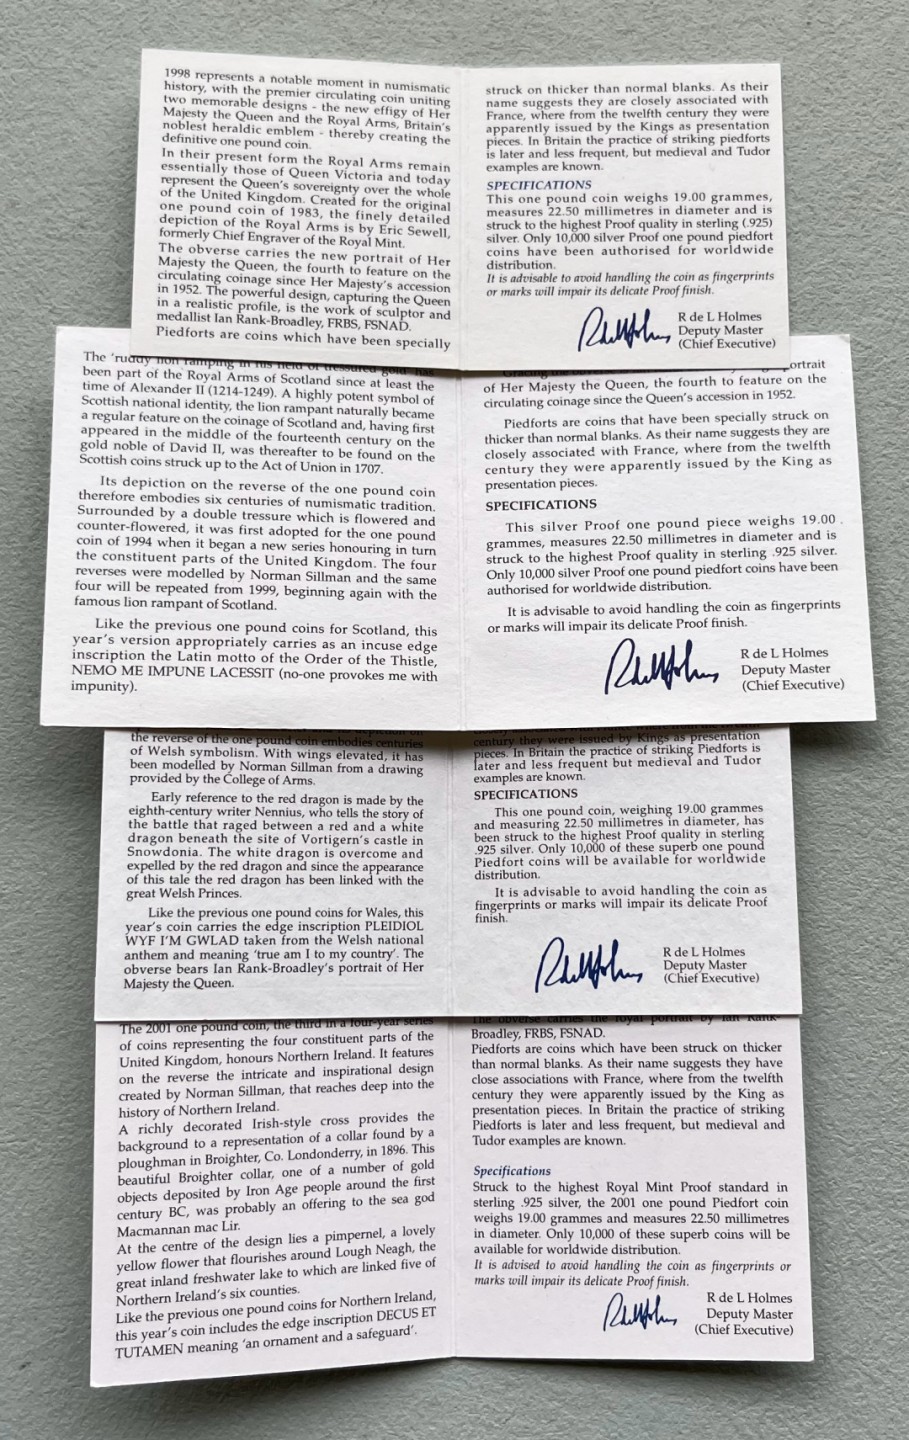 1998 represents a notable moment in numismatic
history, with the premier circulating coin uniting
two memorable designs - the new effigy of Her
Majesty the Queen and the Royal Arms, Britain's
noblest heraldic emblem - thereby creating the
definitive one pound coin.
In their present form the Royal Arms remain
essentially those of Queen Victoria and today
represent the Queen's sovereignty over the whole
of the United Kingdom. Created for the original
one pound coin of 1983, the finely detailed
depiction of the Royal Arms is by Eric Sewell,
formerly Chief Engraver of the Royal Mint.
The obverse carries the new portrait of Her
Majesty the Queen, the fourth to feature on the
circulating coinage since Her Majesty's accession
in 1952. The powerful design, capturing the Queen
in a realistic profile, is the work of sculptor and
medallist Ian Rank-Broadley, FRBS, FSNAD.
Piedforts are coins which have been specially
struck on thicker than normal blanks. As their
name suggests they are closely associated with
France, where from the twelfth century they were
apparently issued by the Kings as presentation
pieces. In Britain the practice of striking piedforts
is later and less frequent, but medieval and Tudor
examples are known.
SPECIFICATIONS
This one pound coin weighs 19.00 grammes,
measures 22.50 millimetres in diameter and is
struck to the highest Proof quality in sterling (.925)
silver. Only 10,000 silver Proof one pound piedfort
coins have been authorised for worldwide
distribution.
It is advisable to avoid handling the coin as fingerprints
or marks will impair its delicate Proof finish.
R de L Holmes
Deputy Master
(Chief Executive)
The 'ruddy lion ramping in his field of tressured gold' has
been part of the Royal Arms of Scotland since at least the
time of Alexander II (1214-1249). A highly potent symbol of
Scottish national identity, the lion rampant naturally became
a regular feature on the coinage of Scotland and, having first
appeared in the middle of the fourteenth century on the
gold noble of David II, was thereafter to be found on the
Scottish coins struck up to the Act of Union in 1707.
Its depiction on the reverse of the one pound coin
therefore embodies six centuries of numismatic tradition.
Surrounded by a double tressure which is flowered and
counter-flowered, it was first adopted for the one pound
coin of 1994 when it began a new series honouring in turn
the constituent parts of the United Kingdom. The four
reverses were modelled by Norman Sillman and the same
four will be repeated from 1999, beginning again with the
famous lion rampant of Scotland.
Like the previous one pound coins for Scotland, this
year's version appropriately carries as an incuse edge
inscription the Latin motto of the Order of the Thistle,
NEMO ME IMPUNE LACESSIT (no-one provokes me with
impunity).
portrait
of Her Majesty the Queen, the fourth to feature on the
circulating coinage since the Queen's accession in 1952.
Piedforts are coins that have been specially struck on
thicker than normal blanks. As their name suggests they are
closely associated with France, where from the twelfth
century they were apparently issued by the King as
presentation pieces.
SPECIFICATIONS
This silver Proof one pound piece weighs 19.00
grammes, measures 22.50 millimetres in diameter and is
struck to the highest Proof quality in sterling .925 silver.
Only 10,000 silver Proof one pound piedfort coins have been
authorised for worldwide distribution.
It is advisable to avoid handling the coin as fingerprints
or marks will impair its delicate Proof finish.
R de L Holmes
Deputy Master
(Chief Executive)
the reverse of the one pound coin embodies centuries
of Welsh symbolism. With wings elevated, it has
been modelled by Norman Sillman from a drawing
provided by the College of Arms.
Early reference to the red dragon is made by the
eighth-century writer Nennius, who tells the story of
the battle that raged between a red and a white
dragon beneath the site of Vortigern's castle in
Snowdonia. The white dragon is overcome and
expelled by the red dragon and since the appearance
of this tale the red dragon has been linked with the
great Welsh Princes.
Like the previous one pound coins for Wales, this
year's coin carries the edge inscription PLEIDIOL
WYF I'M GWLAD taken from the Welsh national
anthem and meaning 'true am I to my country'. The
obverse bears Ian Rank-Broadley's portrait of Her
Majesty the Queen.
century they were issued by Kings as presentation
pieces. In Britain the practice of striking Piedforts is
later and less frequent but medieval and Tudor
examples are known.
SPECIFICATIONS
This one pound coin, weighing 19.00 grammes
and measuring 22.50 millimetres in diameter, has
been struck to the highest Proof quality in sterling
.925 silver. Only 10,000 of these superb one pound
Piedfort coins will be available for worldwide
distribution.
It is advisable to avoid handling the coin as
fingerprints or marks will impair its delicate Proof
finish.
R de L Holmes
Deputy Master
(Chief Executive)
The 2001 one pound coin, the third in a four-year series
of coins representing the four constituent parts of the
United Kingdom, honours Northern Ireland. It features
on the reverse the intricate and inspirational design
created by Norman Sillman, that reaches deep into the
history of Northern Ireland.
A richly decorated Irish-style cross provides the
background to a representation of a collar found by a
ploughman in Broighter, Co. Londonderry, in 1896. This
beautiful Broighter collar, one of a number of gold
objects deposited by Iron Age people around the first
century BC, was probably an offering to the sea god
Macmannan mac Lir.
At the centre of the design lies a pimpernel, a lovely
yellow flower that flourishes around Lough Neagh, the
great inland freshwater lake to which are linked five of
Northern Ireland's six counties.
Like the previous one pound coins for Northern Ireland,
this year's coin includes the edge inscription DECUS ET
TUTAMEN meaning 'an ornament and a safeguard'.
The obverse carries the royal portrait by Ian Rank-
Broadley, FRBS, FSNAD.
Piedforts are coins which have been struck on thicker
than normal blanks. As their name suggests they have
close associations with France, where from the twelfth
century they were apparently issued by the King as
presentation pieces. In Britain the practice of striking
Piedforts is later and less frequent, but medieval and
Tudor examples are known.
Specifications
Struck to the highest Royal Mint Proof standard in
sterling .925 silver, the 2001 one pound Piedfort coin
weighs 19.00 grammes and measures 22.50 millimetres
in diameter. Only 10,000 of these superb coins will be
available for worldwide distribution.
It is advised to avoid handling the coin as fingerprints or
marks will impair its delicate Proof finish.
R de L Holmes
Deputy Master
(Chief Executive)